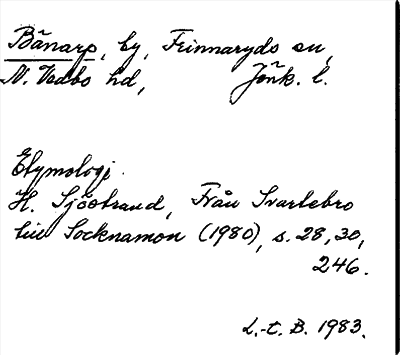 Bänarp, by, Frinnaryds sn,
N. Vedbo hd, Jönk. l.
Etymologi.
H. Sjöstrand, Från Svartebro
till Socknamon (1980), s. 28, 30,
246.
L.-t. B. 1983.